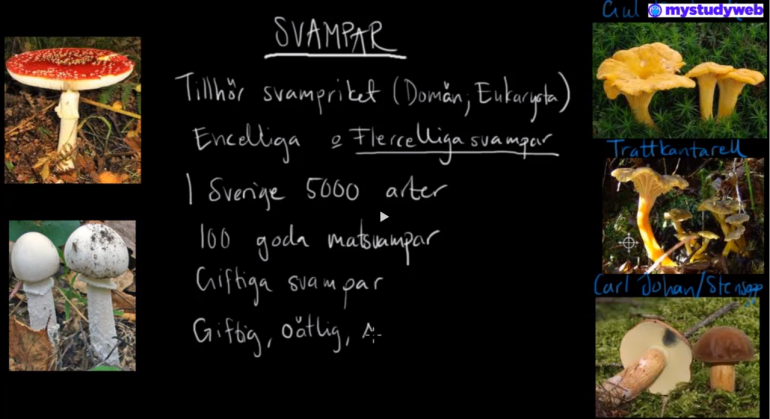 SVAMPAR
Tillhör svampriket (Domän; Eukaryota)
Encelliga o Flercelliga svampar
I Sverige 5000 arter
100 goda matsvampar
Giftiga svampar
Giftig, oätlig,
Gul
mystudyweb
Trattkantarell
Carl Johan/Stensopp